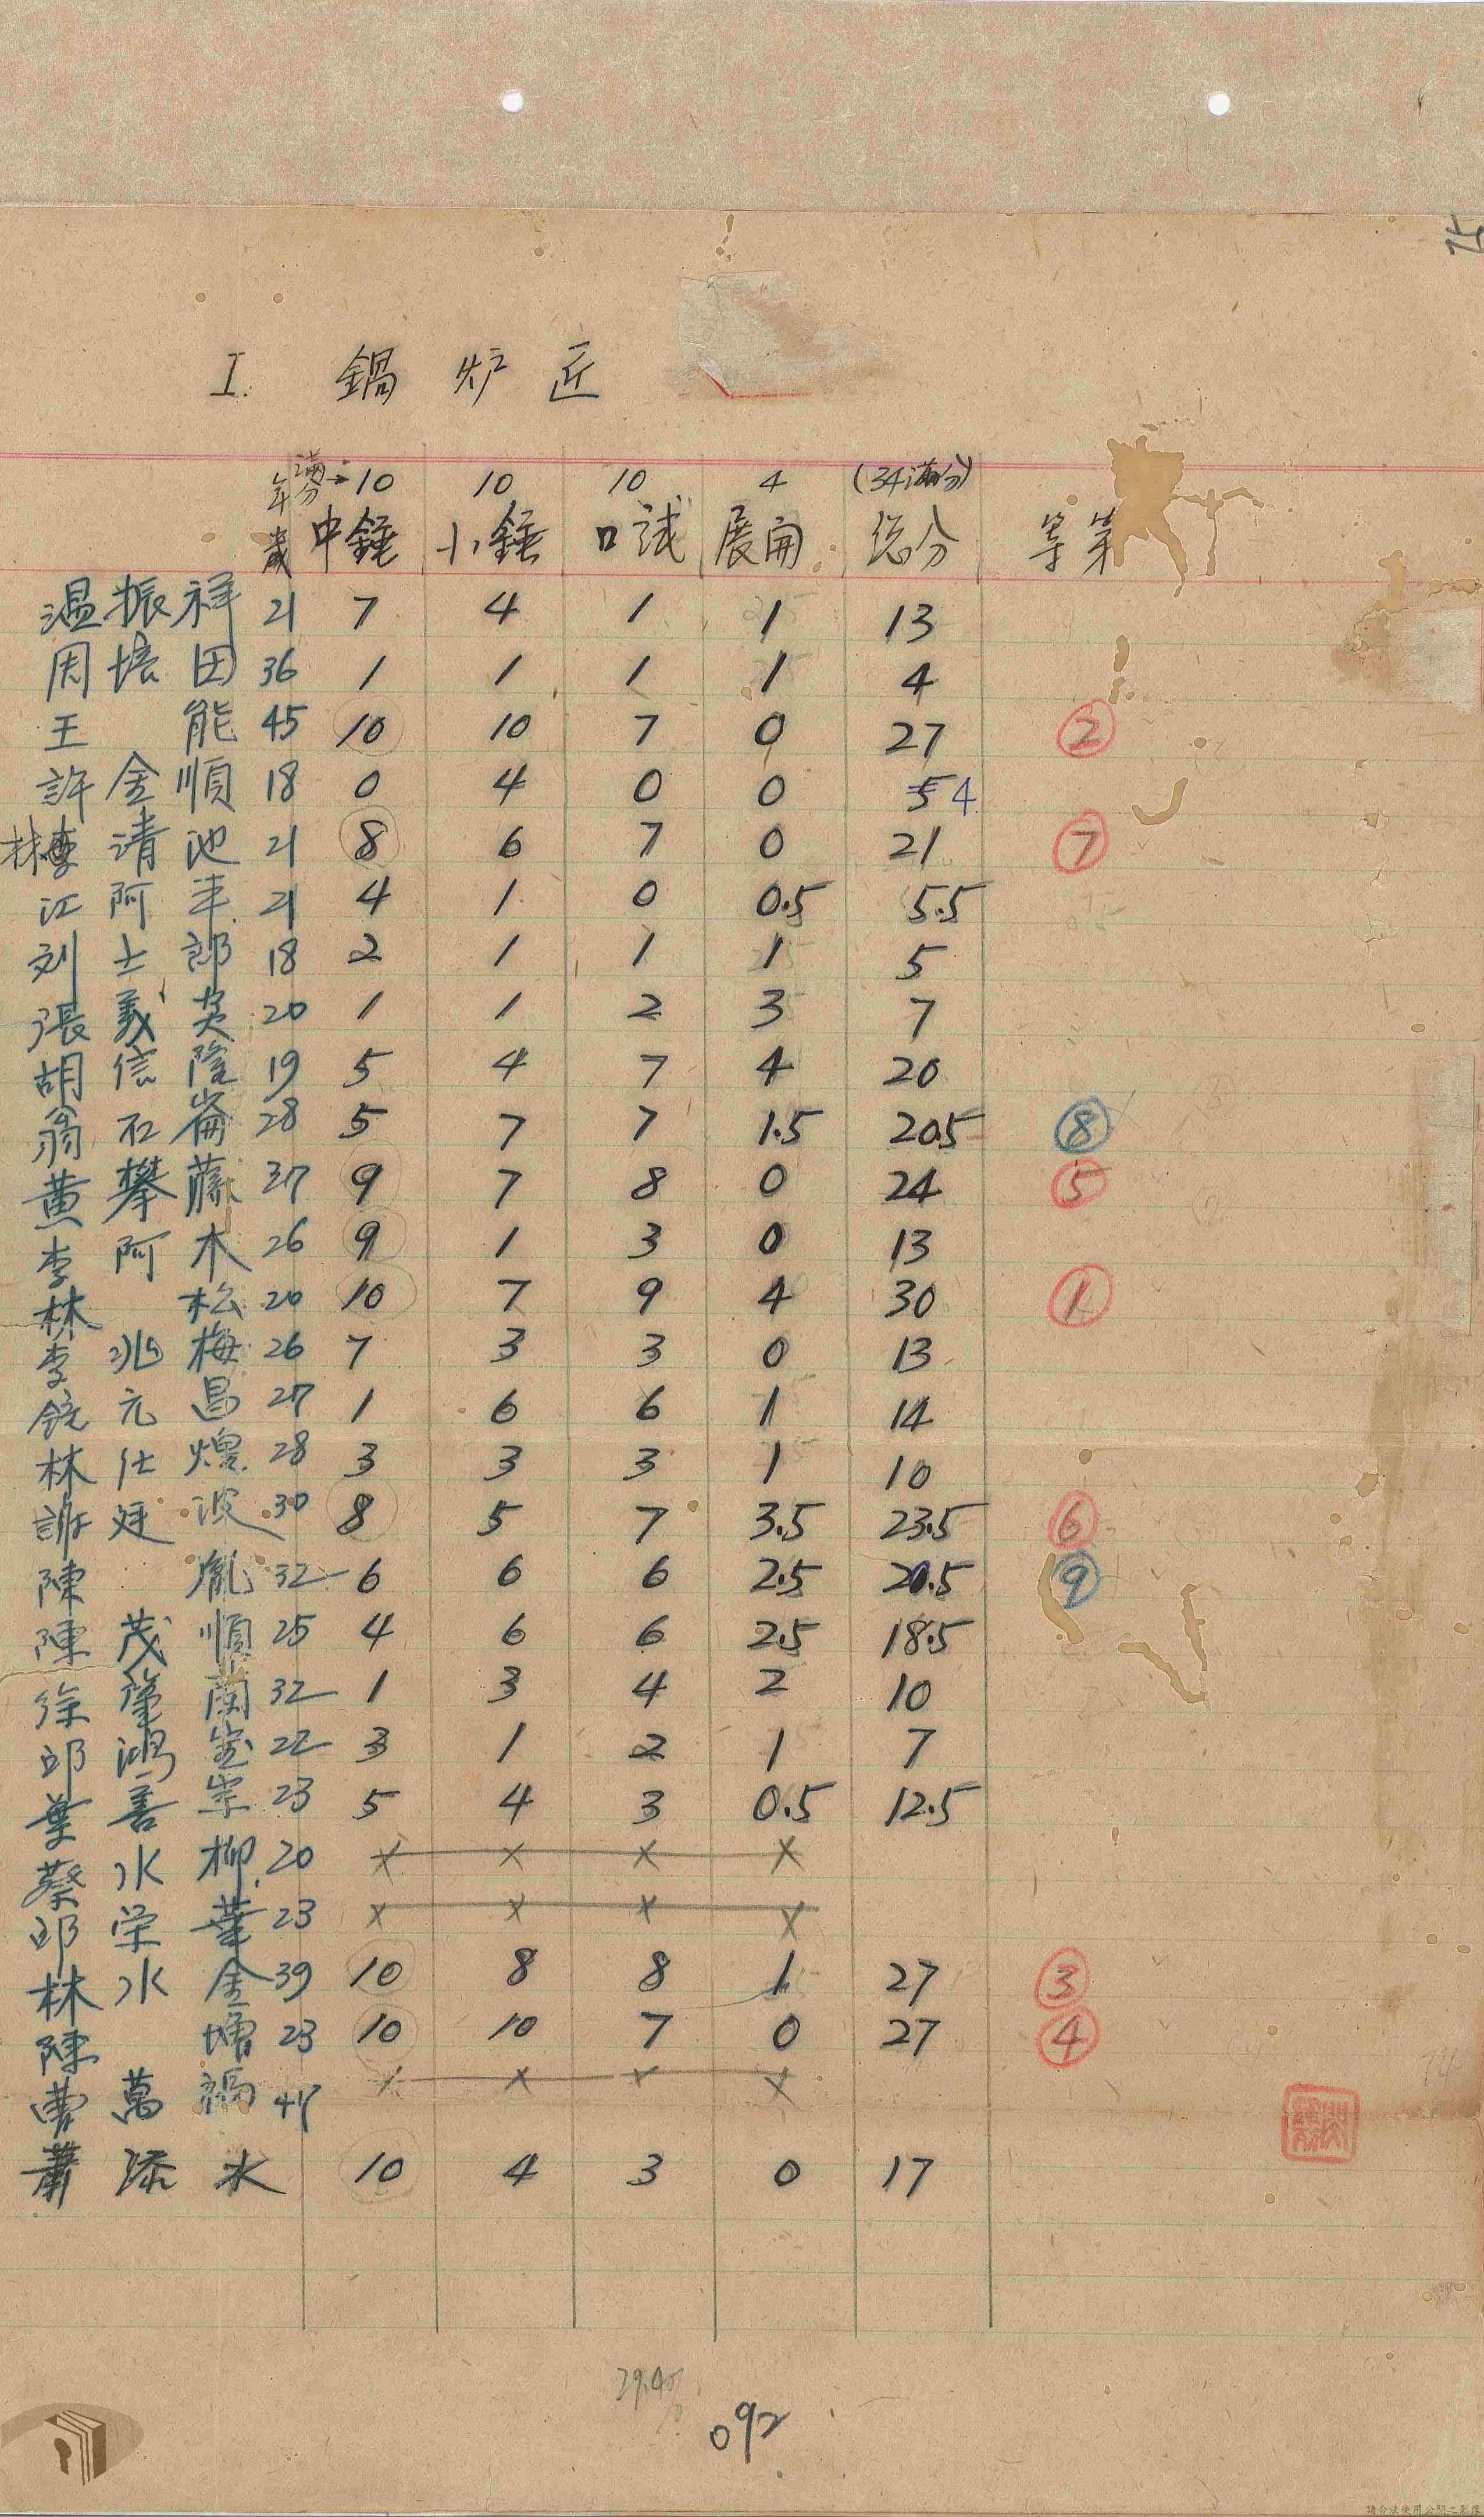 I. 鍋炉匠
年歳 滿分→10 10 10 4 (34滿分)
中錘 小錘 口試 展開 总分 等第
温振祥 21 7 4 1 1 13
周培田 36 1 1 1 1 4
王能 45 10 10 7 0 27 ②
許金順 18 0 4 0 0 5 4
林李清池 21 8 6 7 0 21 ⑦
江阿丰 21 4 1 0 0.5 5.5
刘士郎 18 2 1 1 1 5
張義英 20 1 1 2 3 7
胡信隆 19 5 4 7 4 20
翁石崙 28 5 7 7 1.5 20.5 ⑧
黄攀藤 37 9 7 8 0 24 ⑤
李阿木 26 9 1 3 0 13
林松 20 10 7 9 4 30 ①
李兆梅 26 7 3 3 0 13
元昌 27 1 6 6 1 14
林仕煌 28 3 3 3 1 10
謝廷波 30 8 5 7 3.5 23.5 ⑥
陳胤 32 6 6 6 2.5 20.5 ⑨
陳茂順 25 4 6 6 2.5 18.5
徐肇蘭 32 1 3 4 2 10
邱鴻 22 3 1 2 1 7
葉善崇 23 5 4 3 0.5 12.5
蔡水柳 20 × × × ×
邱栄華 23 × × × ×
林水金 39 10 8 8 1 27 ③
陳增 23 10 10 7 0 27 ④
曹萬福 47 × × × ×
蕭添水 10 4 3 0 17
74
29.40
092
請合法使用公開之影像